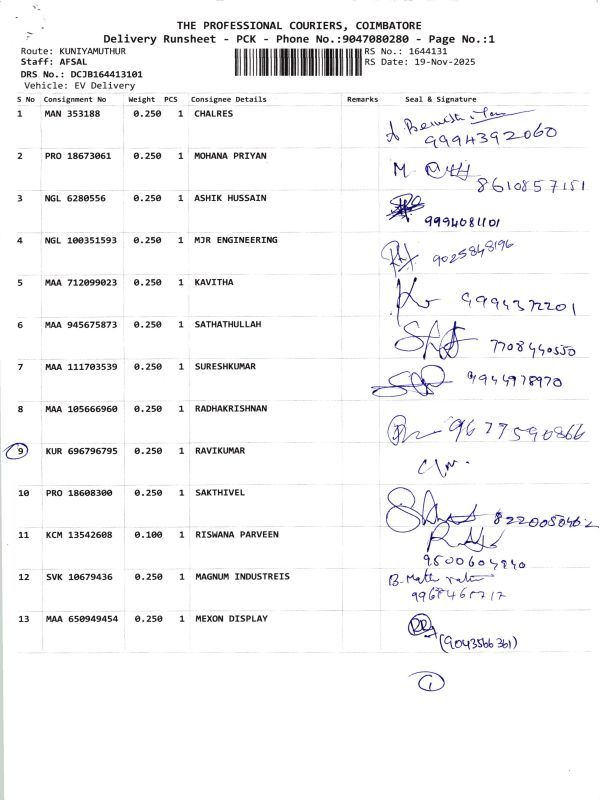 THE PROFESSIONAL COURIERS, COIMBATORE
Delivery Runsheet - PCK - Phone No.:9047080280 - Page No.:1
Route: KUNIYAMUTHUR RS No.: 1644131
Staff: AFSAL RS Date: 19-Nov-2025
DRS No.: DCJB164413101
Vehicle: EV Delivery
S No Consignment No Weight PCS Consignee Details Remarks Seal & Signature
1 MAN 353188 0.250 1 CHALRES
9994392060
2 PRO 18673061 0.250 1 MOHANA PRIYAN M.
8610857151
3 NGL 6280556 0.250 1 ASHIK HUSSAIN
9994081101
4 NGL 100351593 0.250 1 MJR ENGINEERING
9025848196
5 MAA 712099023 0.250 1 KAVITHA
9994372201
6 MAA 945675873 0.250 1 SATHATHULLAH
7708440550
7 MAA 111703539 0.250 1 SURESHKUMAR
9944978970
8 MAA 105666960 0.250 1 RADHAKRISHNAN
9677590866
9 KUR 696796795 0.250 1 RAVIKUMAR
10 PRO 18608300 0.250 1 SAKTHIVEL
11 KCM 13542608 0.100 1 RISWANA PARVEEN
12 SVK 10679436 0.250 1 MAGNUM INDUSTREIS
13 MAA 650949454 0.250 1 MEXON DISPLAY
(9043566361)
1